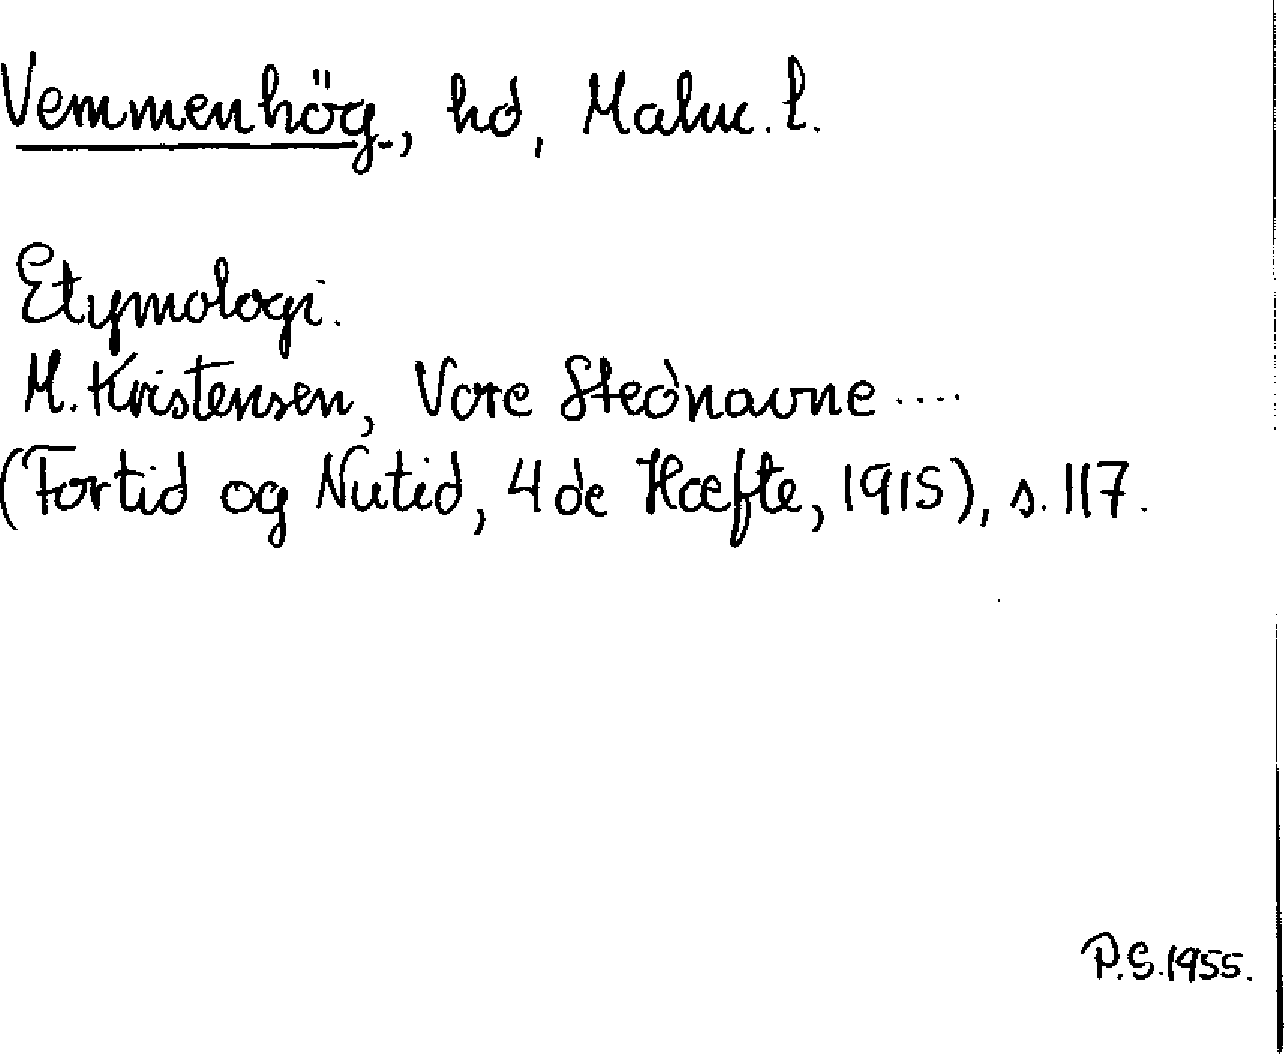 Vemmenhög, hd, Malm. l.
Etymologi.
M. Kristensen, Vore Stednavne ....
(Fortid og Nutid, 4de Hæfte, 1915), s. 117.
P.S. 1955.